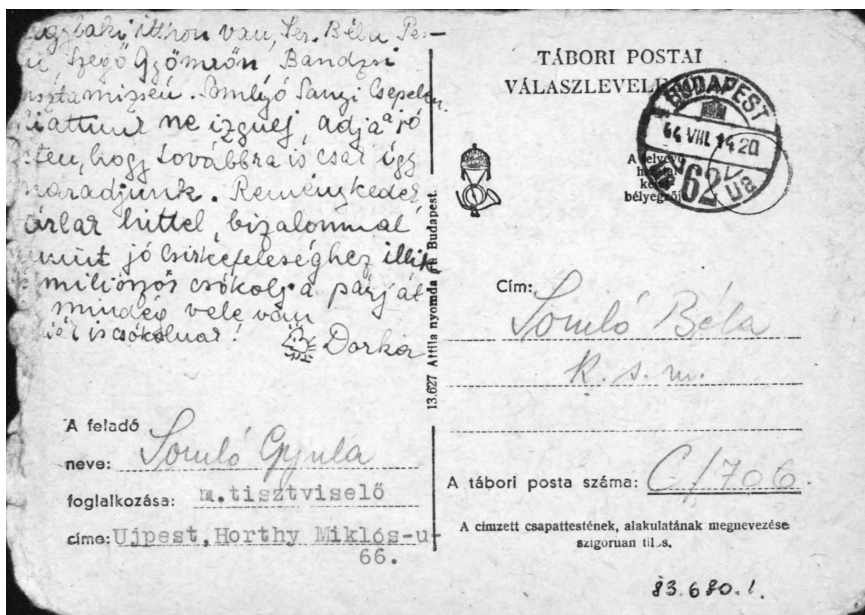 itthon van, Ser. Béla
Szegő Gyömrőn Bandzsi
Somlyó Sanyi Csepelen.
ne izgulj, adja a jó
hogy továbbra is csak így
maradjunk. Reménykedek,
hittel, bizalommal
mint jó csirkefeleséghez illik
milliószor csókolja párját
mindég vele van
is csókolnak!
Dorka
A feladó
neve: Somló Gyula
foglalkozása: m.tisztviselő
címe: Ujpest, Horthy Miklós-u-
66.
13.627 Attila nyomda Budapest.
TÁBORI POSTAI
VÁLASZLEVELE
BUDAPEST
VIII. 14 20
62
A
bélyegzője
Cím: Somló Béla
k. s. m.
A tábori posta száma: C/706.
A címzett csapattestének, alakulatának megnevezése
szigoruan tilos.
83.680.1.